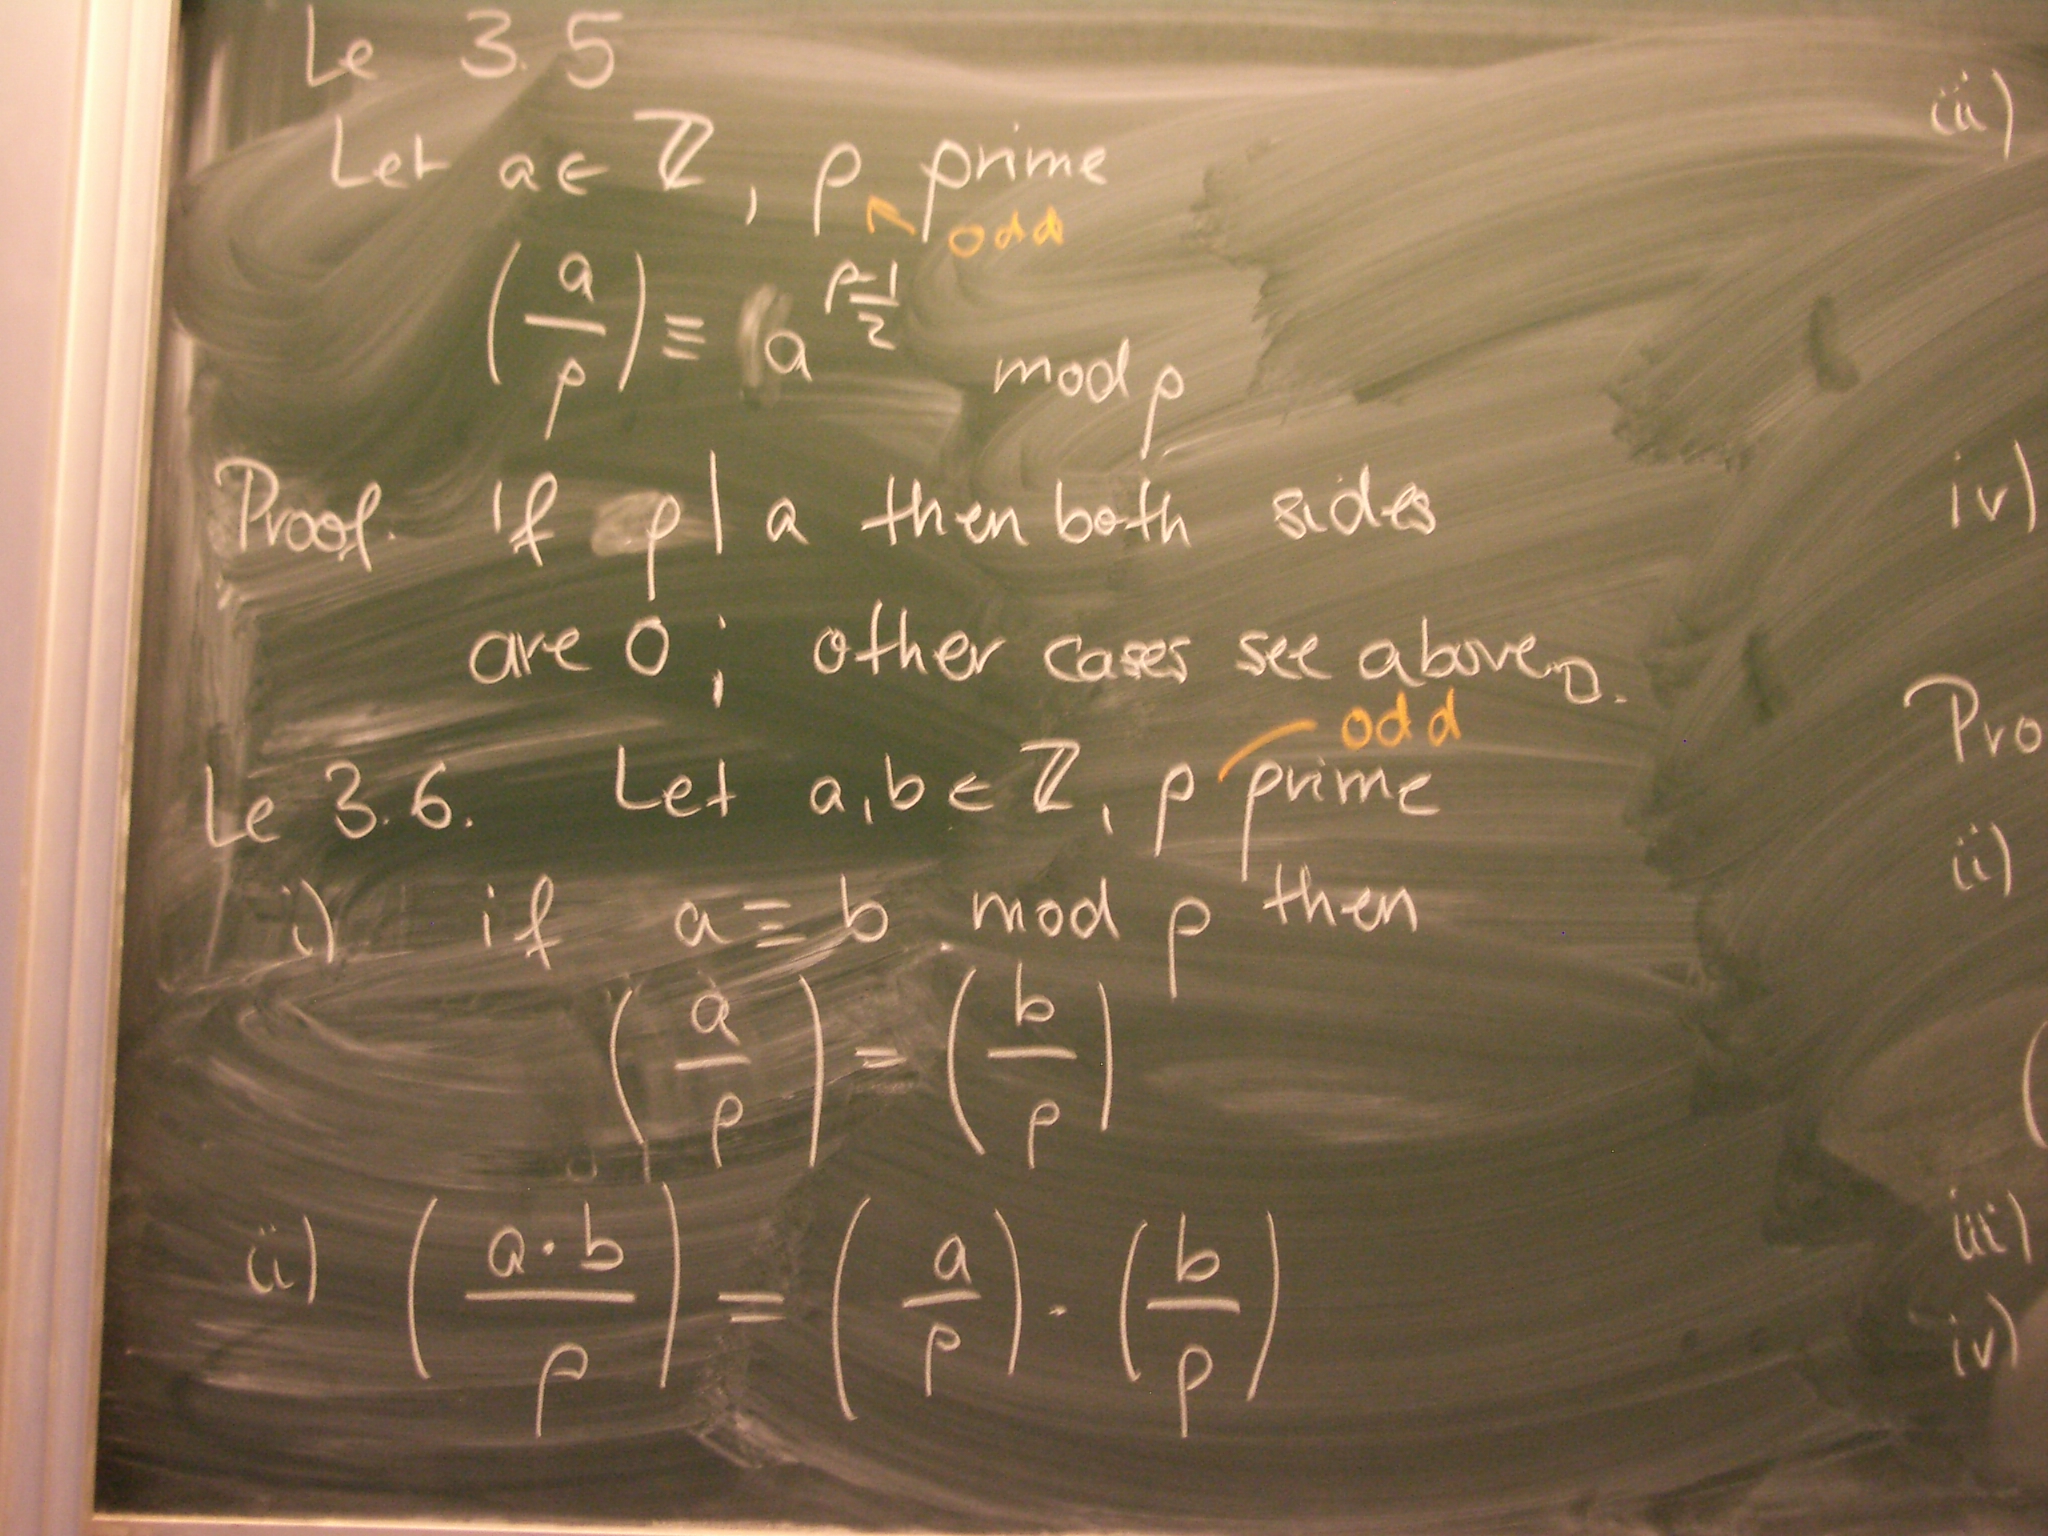 Le 3.5
Let a ∈ ℤ, p prime
odd
(a/p) ≡ a^((p-1)/2) mod p
Proof. If p | a then both sides
are 0; other cases see above □.
odd
Le 3.6. Let a, b ∈ ℤ, p prime
i) if a ≡ b mod p then
(a/p) = (b/p)
ii) (a·b/p) = (a/p) · (b/p)
iii)
iv)
Pro
ii)
(
iii)
iv)